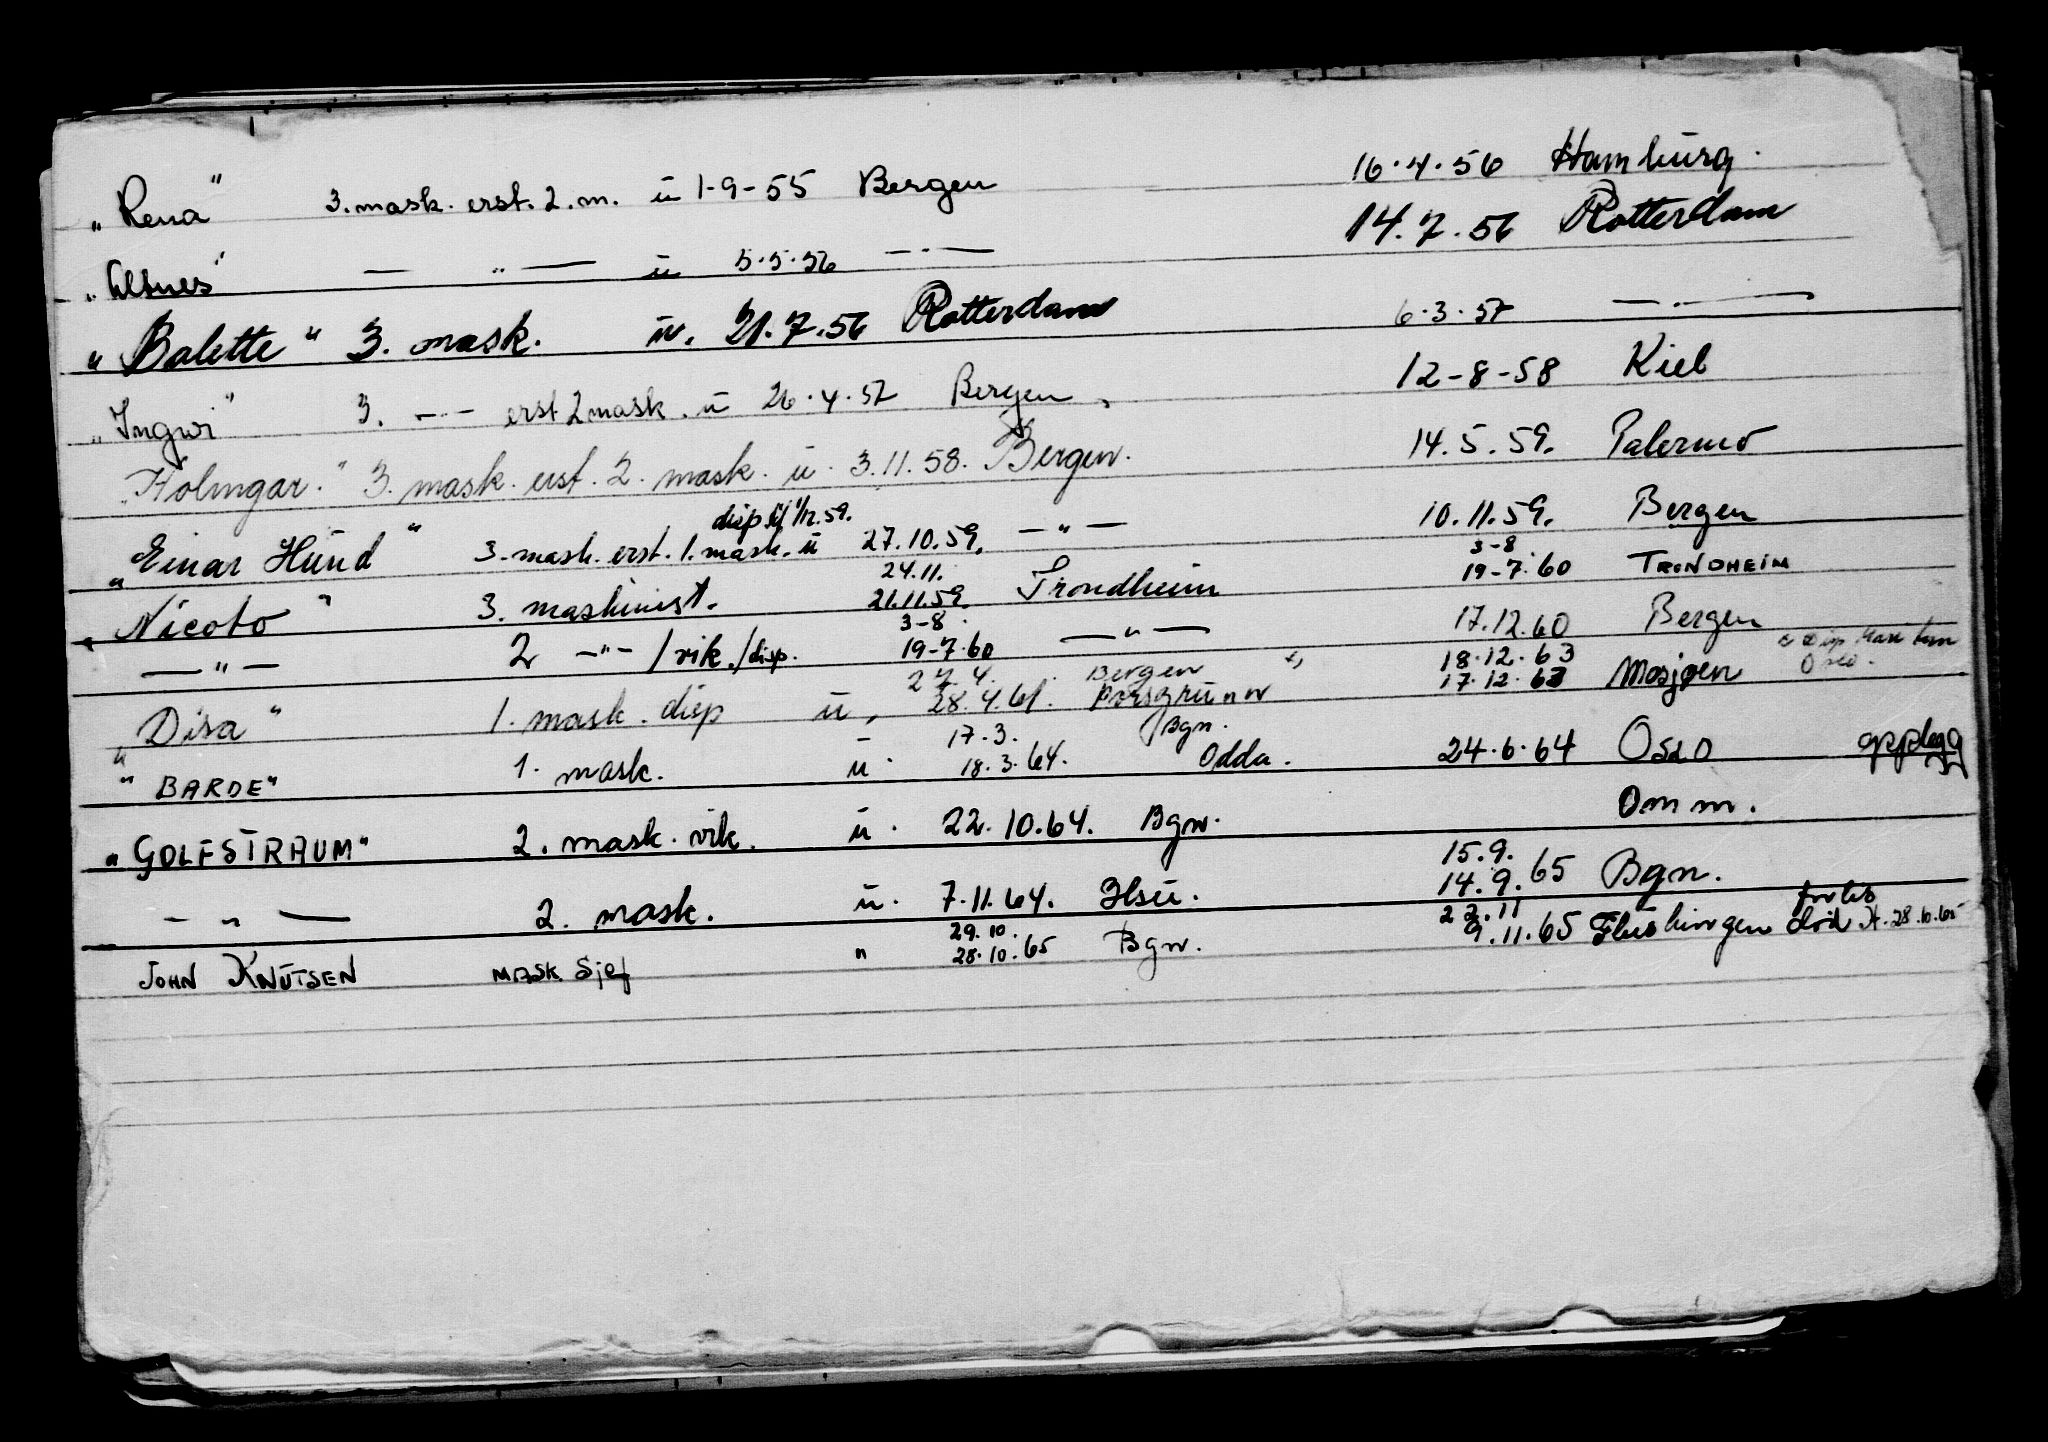 „Rena" 3. mask. erst. 2. m. ü 1-9-55 Bergen 16.4.56 Hamburg.
„Altnes" — " — ü 5.5.56 — " — 14.7.56 Rotterdam
"Balette" 3. mask. ü. 21.7.56 Rotterdam 6.3.57 — " —
„Ingwi" 3. — " — erst 2 mask. ü 26.4.57 Bergen. 12-8-58 Kiel
„Holmgar." 3. mask. erst. 2. mask. ü. 3.11.58. Bergen. 14.5.59. Palermo
disp 1/12.59.
„Einar Hund" 3. mask. erst. 1. mask. ü 27.10.59. — " — 10.11.59. Bergen
24.11. 3-8
"Nicoto" 3. maskinist. 21.11.59. Trondheim 19-7.60 TRONDHEIM
3-8
— " — 2 — " — / vik. / disp. 19-7.60 — " — 17.12.60 Bergen
27.4. Bergen 18.12.63 Oslo.
„Disa" 1. mask. disp ü, 28.4.61. Porsgrunn 17.12.63 Mosjøen
17.3. Bgn.
"BARDE" 1. mask. ü. 18.3.64. Odda. 24.6.64 OSLO opplegg
"GOLFSTRAUM" 2. mask. vik. ü. 22.10.64. Bgn. Omm.
15.9.
— " — 2. mask. ü. 7.11.64. Hsu. 14.9.65 Bgn.
29.10. 22.11 forlis
JOHN KNUTSEN MASK Sjef " 28.10.65 Bgn. 9.11.65 Flushingen 28.10.65